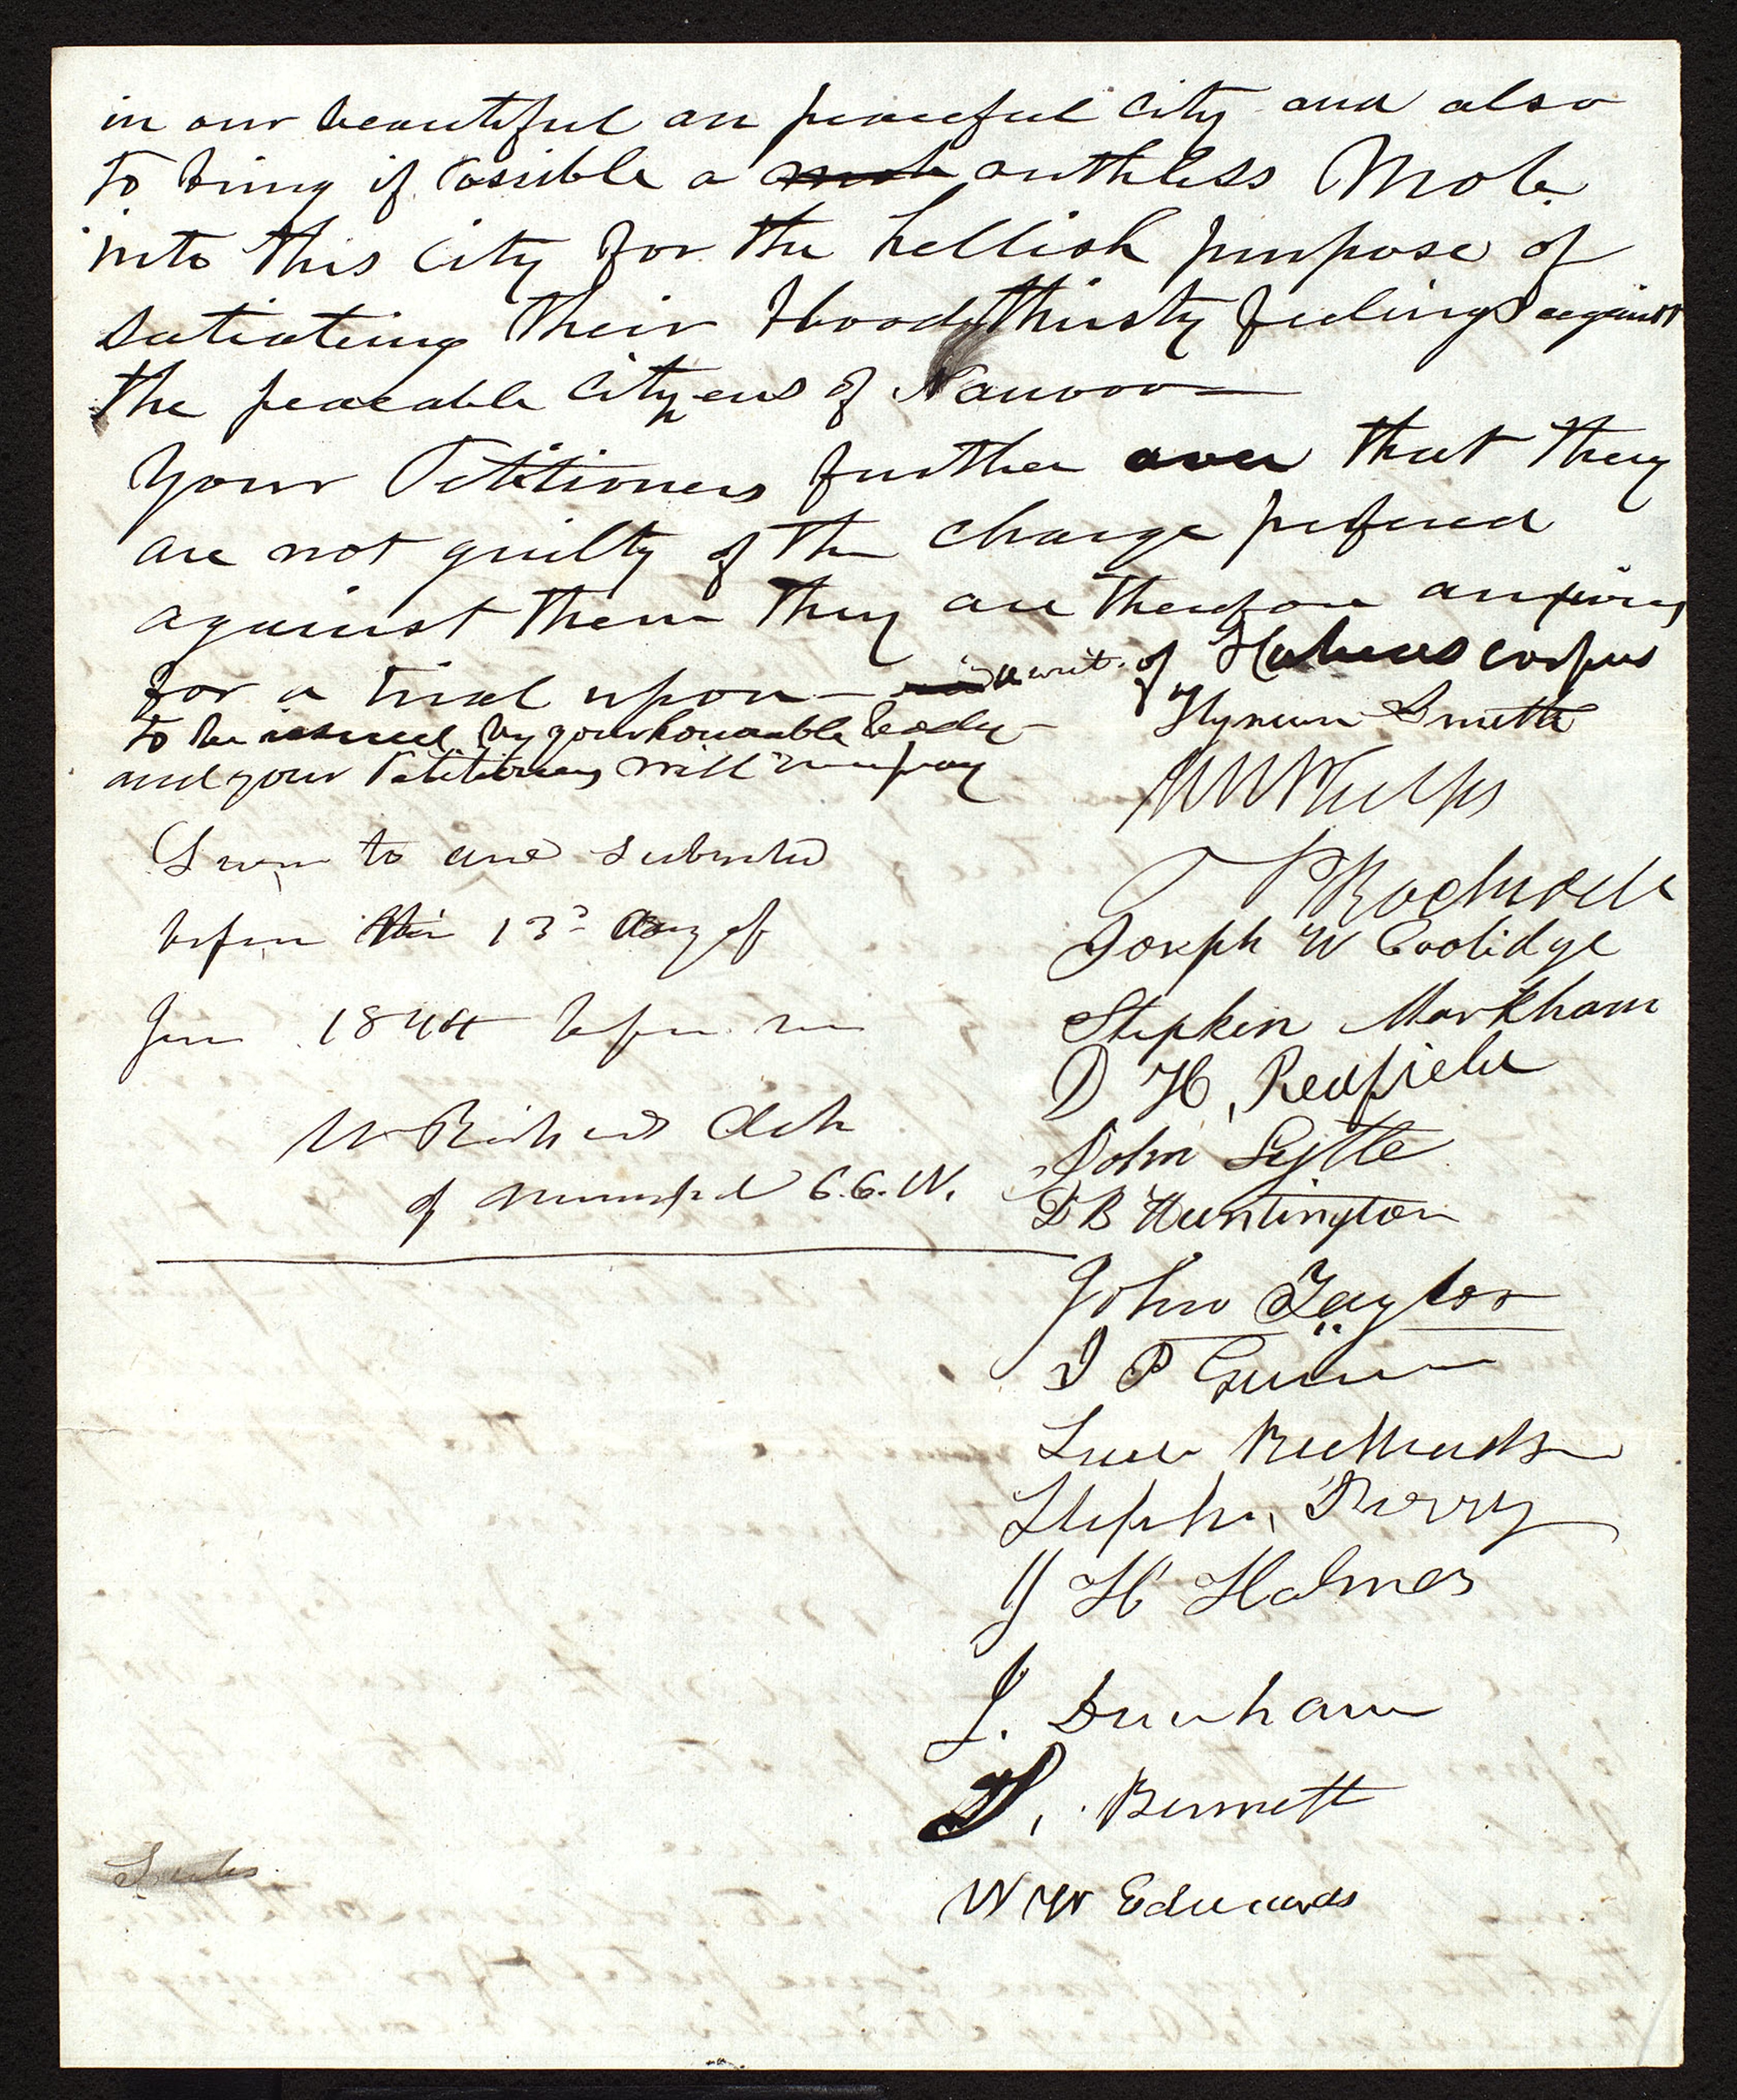 in our beautiful an peaceful city and also
to bring if Possible a ruthless Mob.
into this City for the hellish purpose of
satiating their bloodythirsty feelings against
the peacable Cityzens of Nauvoo
Your Petitioners further aver that they
are not guilty of the charge prefered
against them they are therefore anxious
for a trial upon a writ of Habeus corpus
to be issued by your honourable body
and your Petitioners will pray
Hyrum Smith
W W Phelps
O P Rockwell
Joseph W Coolidge
Stephen Markham
D H, Redfield
John Lytle
D B Huntington
John Taylor
J P Green
Levi Richards
Stephen Perry
J H Holmes
J. Dunham
S. Bennett
W W Edwards
Sworn to and subscribed
before this 13th day of
June 1844 before me
W Richards Clerk
of municipal C.C.N.
Subs